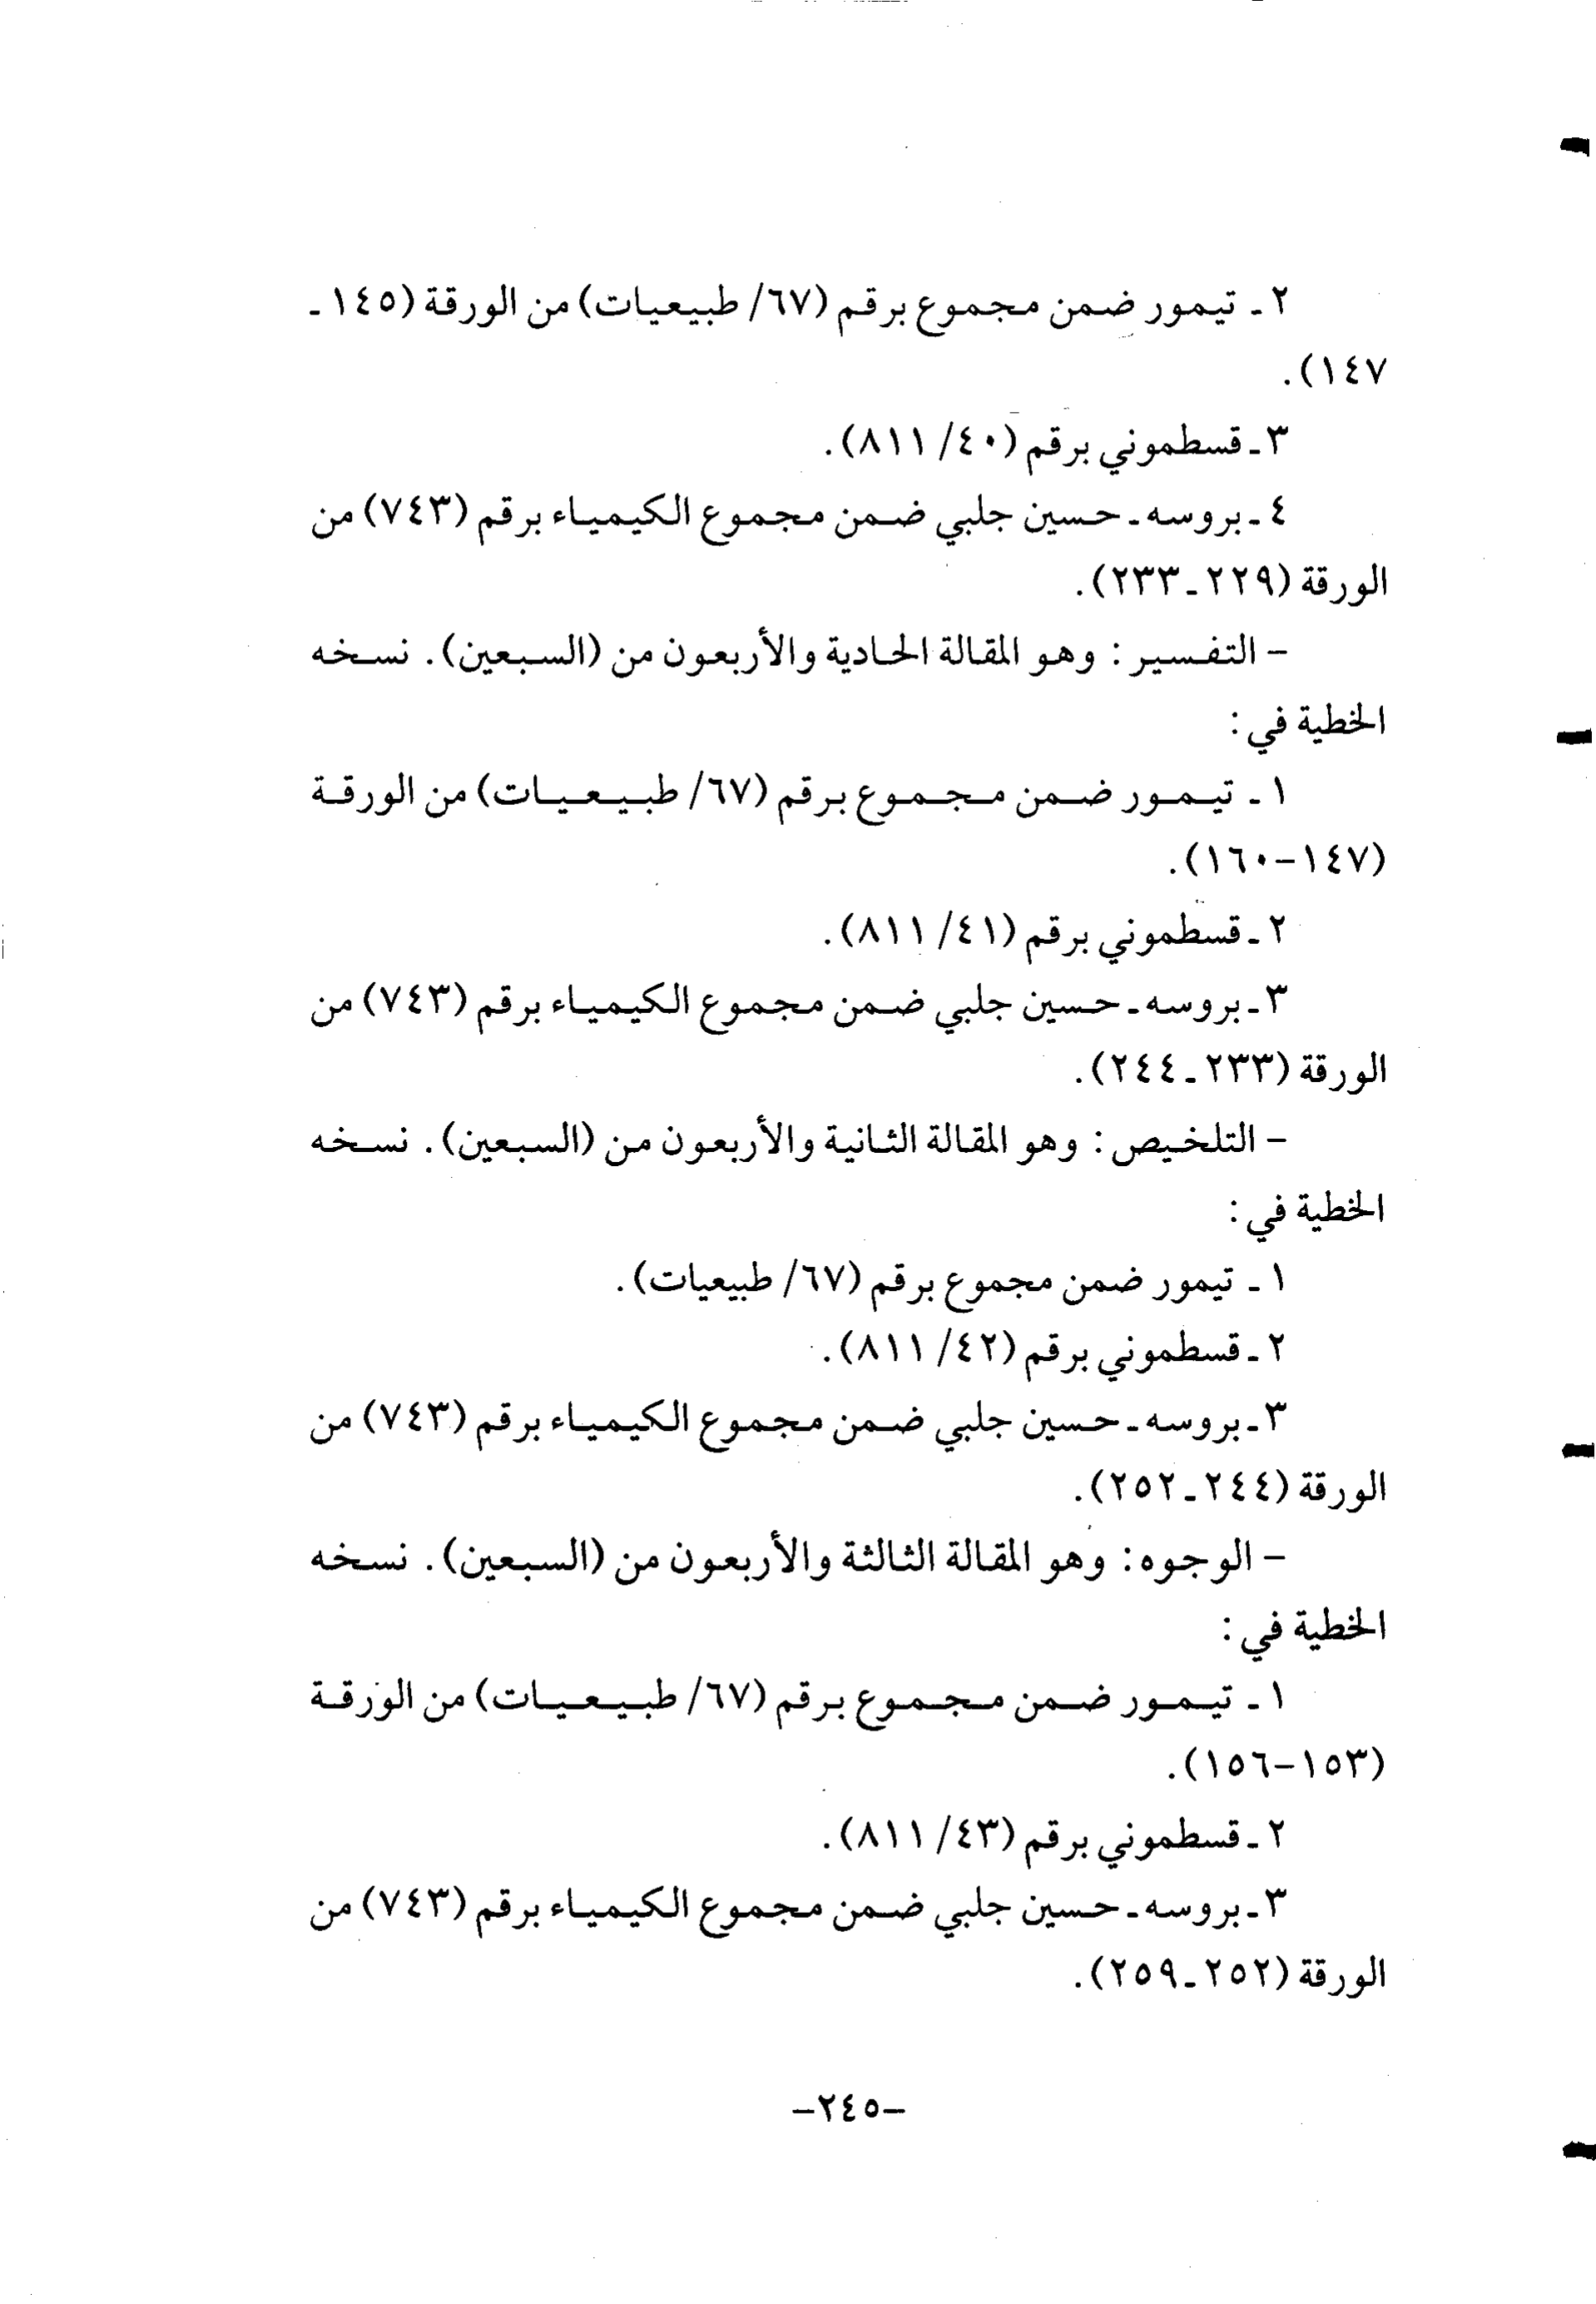 ٢ ـ تيمور ضمن مجموع برقم (٦٧/ طبيعيات) من الورقة (١٤٥ ـ
١٤٧).
٣ ـ قسطموني برقم (٤٠/ ٨١١).
٤ ـ بروسه ـ حسين جلبي ضمن مجموع الكيمياء برقم (٧٤٣) من
الورقة (٢٢٩ ـ ٢٣٣).
– التفسير : وهو المقالة الحادية والأربعون من (السبعين). نسخه
الخطية في :
١ ـ تيمور ضمن مجموع برقم (٦٧/ طبيعيات) من الورقة
(١٤٧–١٦٠).
٢ ـ قسطموني برقم (٤١/ ٨١١).
٣ ـ بروسه ـ حسين جلبي ضمن مجموع الكيمياء برقم (٧٤٣) من
الورقة (٢٣٣ ـ ٢٤٤).
– التلخيص : وهو المقالة الثانية والأربعون من (السبعين). نسخه
الخطية في :
١ ـ تيمور ضمن مجموع برقم (٦٧/ طبيعيات).
٢ ـ قسطموني برقم (٤٢/ ٨١١).
٣ ـ بروسه ـ حسين جلبي ضمن مجموع الكيمياء برقم (٧٤٣) من
الورقة (٢٤٤ ـ ٢٥٢).
– الوجوه : وهو المقالة الثالثة والأربعون من (السبعين). نسخه
الخطية في :
١ ـ تيمور ضمن مجموع برقم (٦٧/ طبيعيات) من الورقة
(١٥٣–١٥٦).
٢ ـ قسطموني برقم (٤٣/ ٨١١).
٣ ـ بروسه ـ حسين جلبي ضمن مجموع الكيمياء برقم (٧٤٣) من
الورقة (٢٥٢ ـ ٢٥٩).
–٢٤٥–